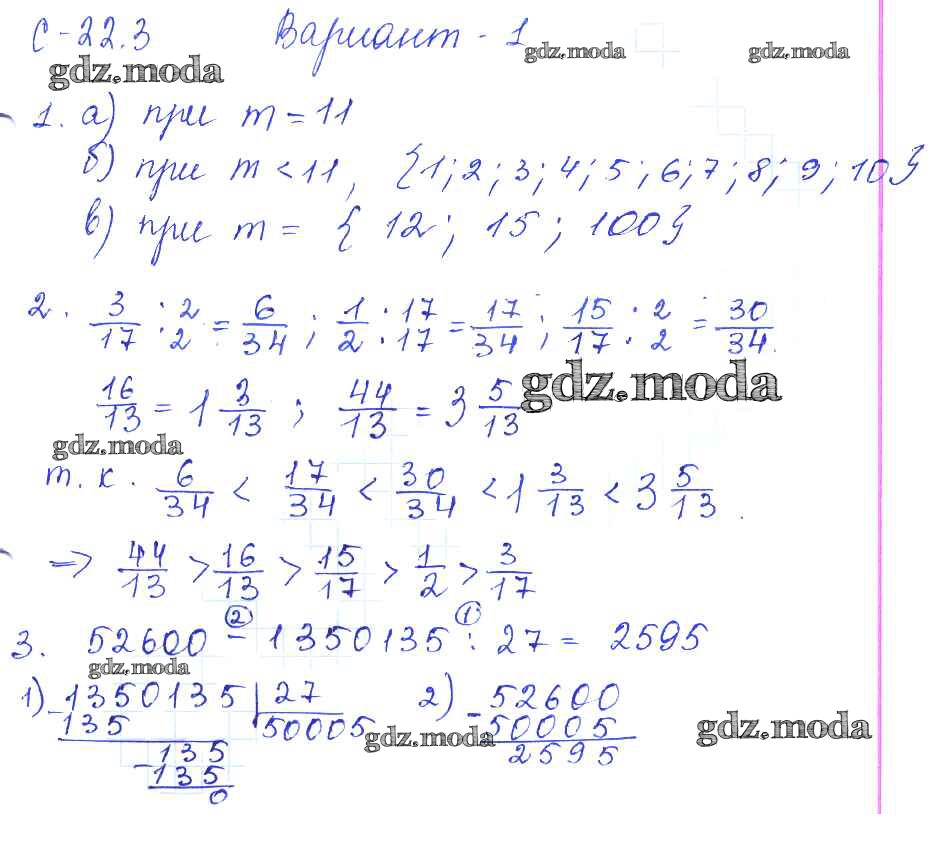 С-22.3 Вариант - 1 gdz.moda gdz.moda
gdz.moda
1. а) при m = 11
б) при m < 11, {1; 2; 3; 4; 5; 6; 7; 8; 9; 10}
в) при m = { 12; 15; 100}
2. 3/17 : 2/2 = 6/34 ; 1/2 · 17/17 = 17/34 ; 15/17 · 2/2 = 30/34.
16/13 = 1 3/13 ; 44/13 = 3 5/13 gdz.moda
gdz.moda
т.к. 6/34 < 17/34 < 30/34 < 1 3/13 < 3 5/13.
=> 44/13 > 16/13 > 15/17 > 1/2 > 3/17
② ①
3. 52600 - 1350135 : 27 = 2595
gdz.moda
1) 1350135 | 27 2) 52600
-135 50005 gdz.moda -50005 gdz.moda
135 2595
-135
0